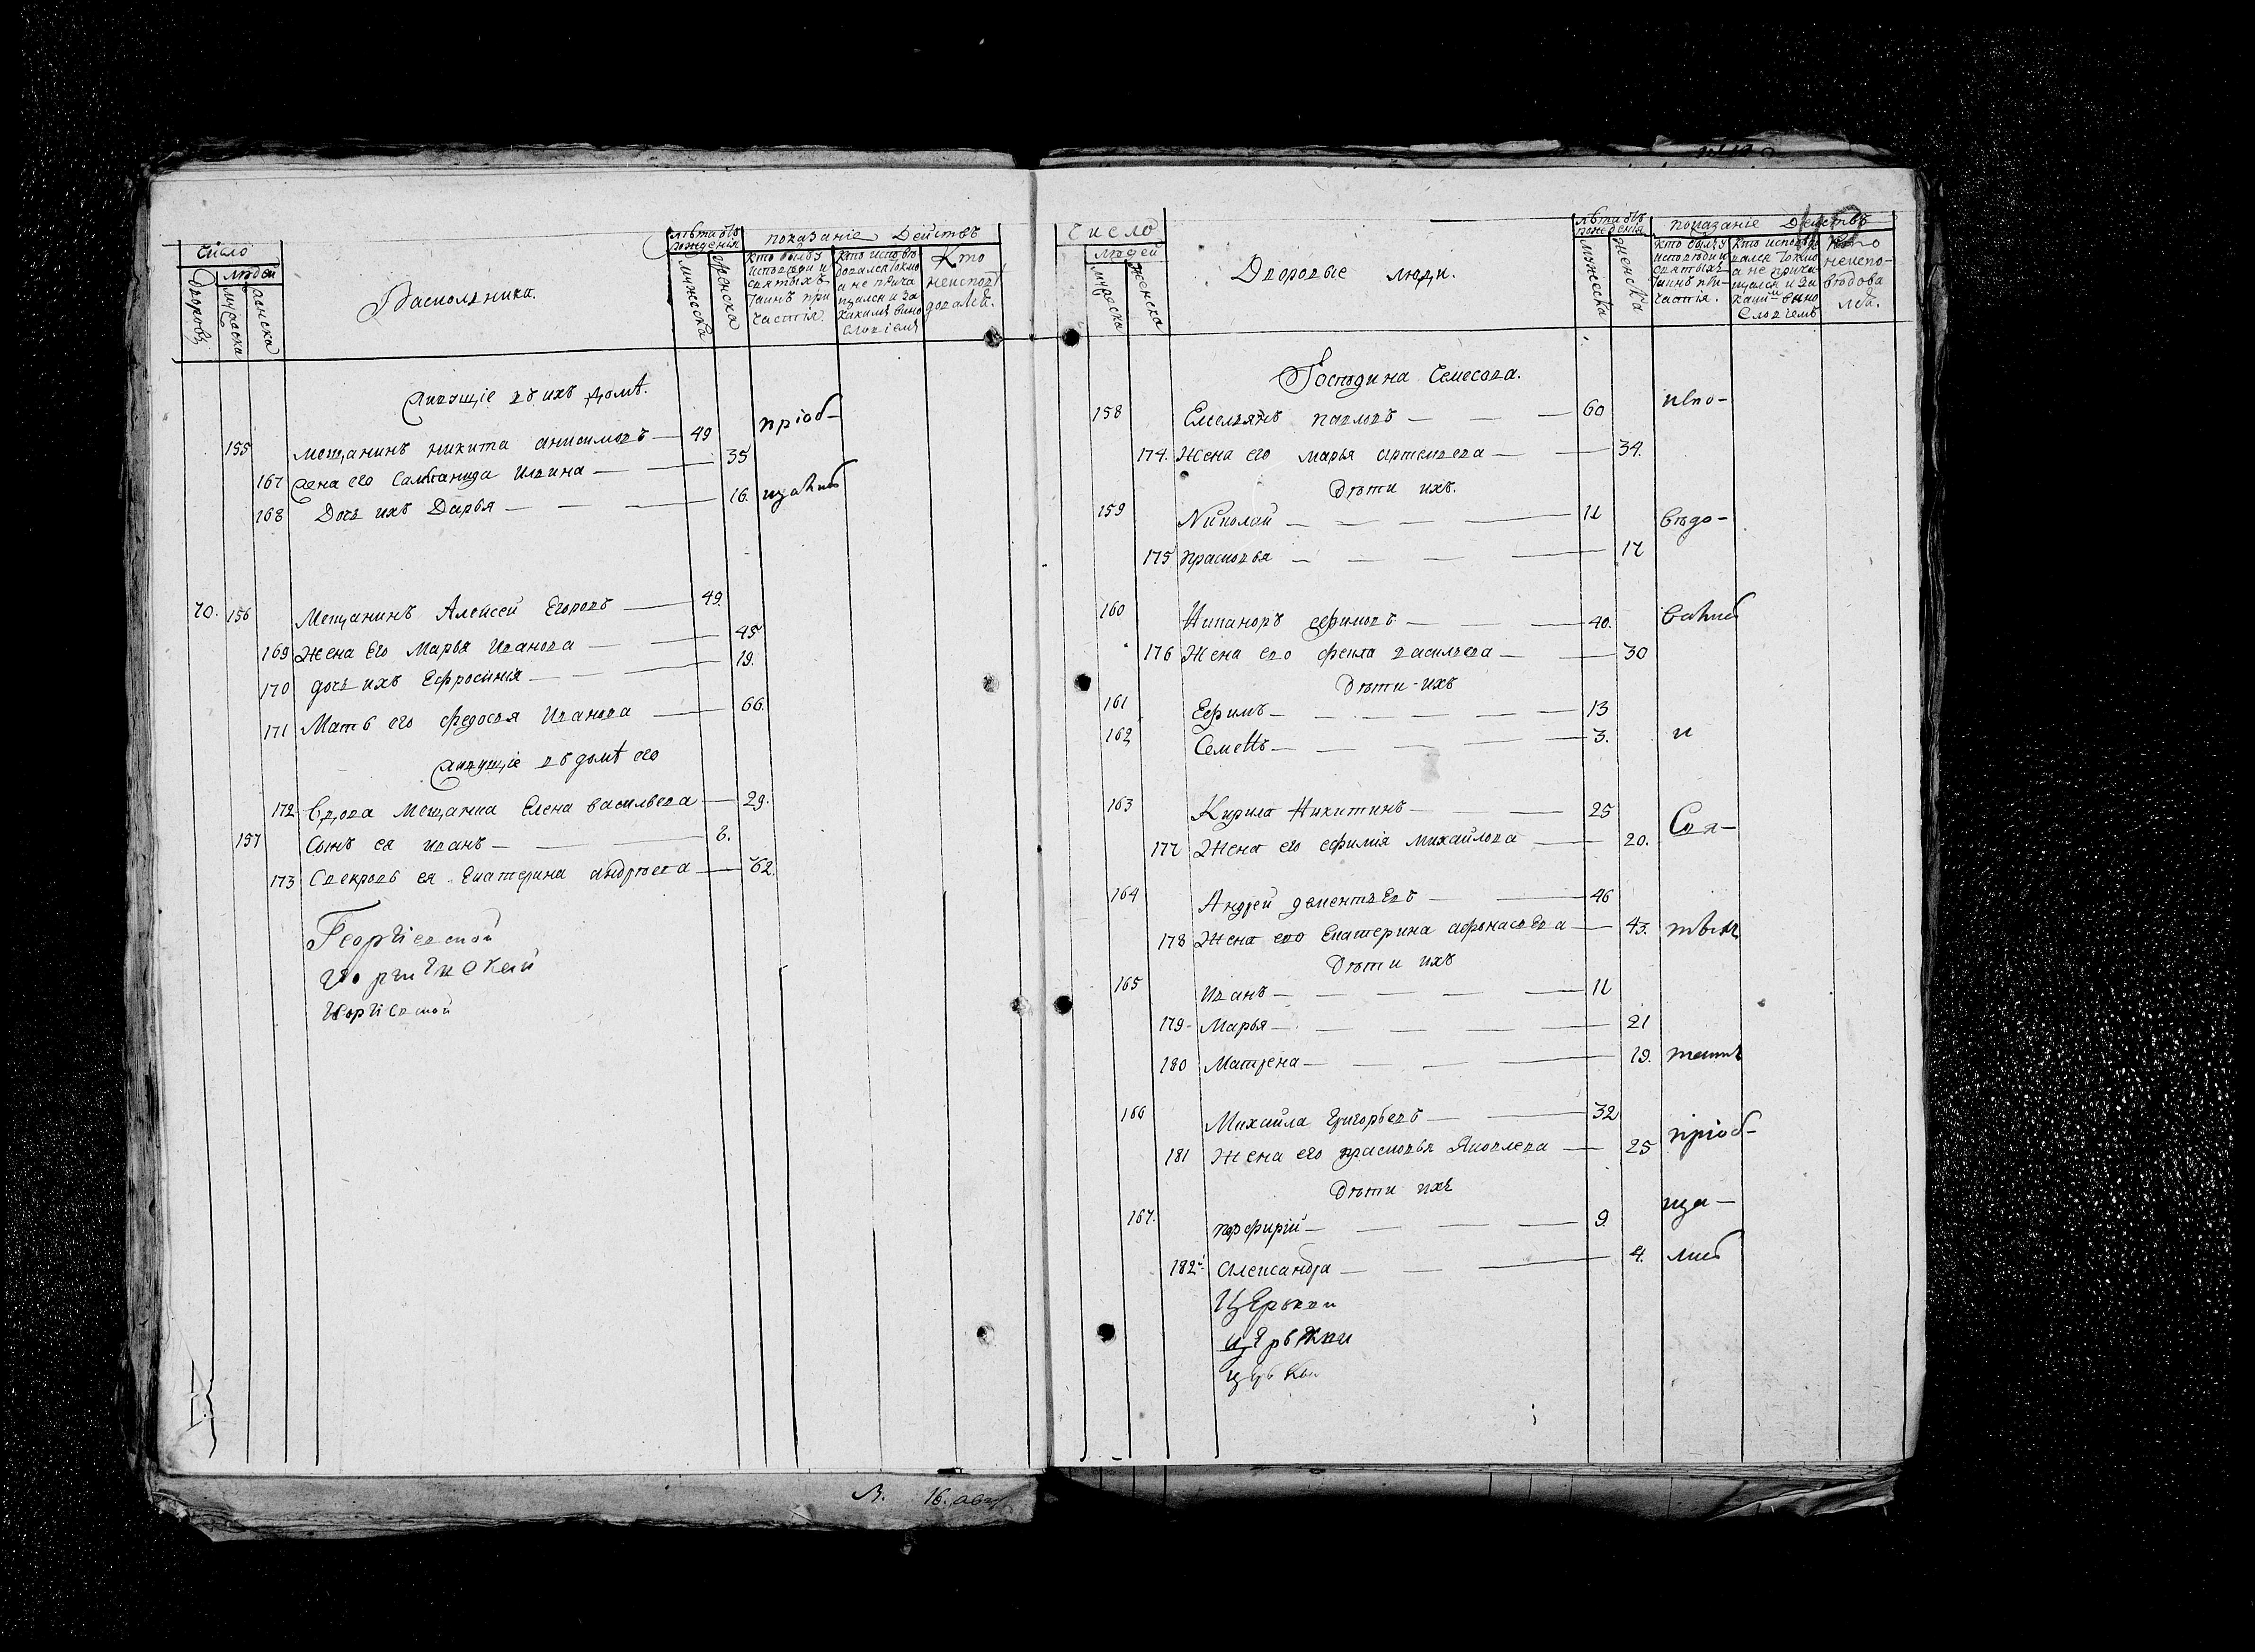 Число
Людей
Дворовъ
мужеска
женска
Раскольники.
лѣта отъ рожденія
мужеска
женска
показаніе Действъ
кто былъ у
исповѣди и
святыхъ
таинъ при
частія.
кто исповѣ
довался токмо
а не прича
щался и за
какимъ вино
словіемъ
Кто
неисповѣ
довался.
живущіе въ ихъ домѣ.
155 мещанинъ никита анисимовъ — 49 пріоб-
167 жена его Илвина — 35
168 Дочь ихъ Дарья — 16. щались
70. 156 Мещанинъ Алексей Егоровъ — 49.
169 Жена его Марья Иванова — 45
170 дочь ихъ Ефросинія — 19.
171 Мать его федосья Иванова — 66.
живущіе въ домѣ его
172 Вдова мещанка Елена васильева — 29.
157 Сынъ ея иванъ — 8.
173 Свекровь ея Екатерина андрѣева — 62.
Георгіевской
16.
Число
людей
мужеска
женска
Дворовые люди.
лѣта отъ рожденія
мужеска
женска
показаніе Действъ
кто былъ у
исповѣди и
святыхъ
таинъ при-
частія.
кто исповѣдо
вался токмо
а не прича
щался и за
какимъ вино
словіемъ
кто
неиспо-
вѣдова
лся.
Господина Семесова.
158 Емельянъ павловъ — 60 испо-
174. Жена его марья артемьева — 34.
Дѣти ихъ.
159 Николай — 11 вѣдо-
175 прасковья — 17
160 Никаноръ ефимовъ — 40. вались
176 Жена его фекла васильева — 30
Дѣти ихъ
161 Ефимъ — 13
162 Семенъ — 3. и
163 Кирила Никитинъ — 25 Свя-
177 Жена его ефимія михайлова — 20.
164 Андрей дементьевъ — 46
178 Жена его Екатерина афонасьева — 43. тыхъ
Дѣти ихъ
165 иванъ — 11
179 Марья — 21
180 Матрена — 19. таинъ
166 Михайла Григорьевъ — 32 пріоб-
181 Жена его прасковья Яковлева — 25
Дѣти ихъ ща-
167. порфирій — 9.
182 Александра — 4. лись
Церькви